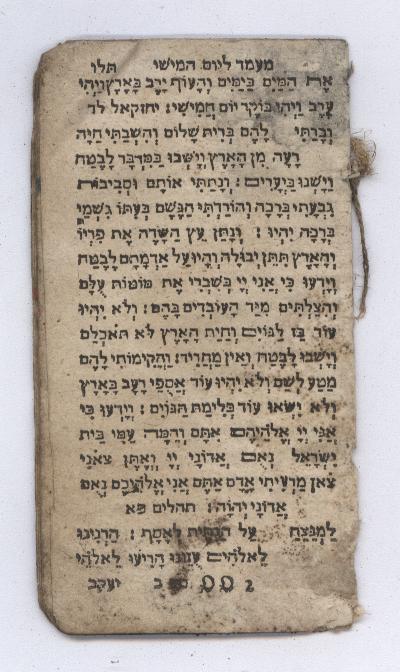 מעמד ליום המישי תלו
אֶת הַמַּיִם בַּיַּמִּים וְהָעוֹף יִרֶב בָּאָרֶץ וַיְהִי
עֶרֶב וַיְהִי בוֹקֶר יוֹם חֲמִישִׁי: יחזקאל לד
וְכָרַתִּי לָהֶם בְּרִית שָׁלוֹם וְהִשְׁבַּתִּי חַיָּה
רָעָה מִן הָאָרֶץ וְיָשְׁבוּ בַּמִּדְבָּר לָבֶטַח
וְיָשְׁנוּ בַּיְּעָרִים: וְנָתַתִּי אוֹתָם וּסְבִיבוֹת
גִּבְעָתִי בְּרָכָה וְהוֹרַדְתִּי הַגֶּשֶׁם בְּעִתּוֹ גִּשְׁמֵי
בְּרָכָה יִהְיוּ: וְנָתַן עֵץ הַשָּׂדֶה אֶת פִּרְיוֹ
וְהָאָרֶץ תִּתֵּן יְבוּלָהּ וְהָיוּ עַל אַדְמָתָם לָבֶטַח
וְיָדְעוּ כִּי אֲנִי יְיָ בְּשִׁבְרִי אֶת מוֹטוֹת עֻלָּם
וְהִצַּלְתִּים מִיַּד הָעוֹבְדִים בָּהֶם: וְלֹא יִהְיוּ
עוֹד בַּז לַגּוֹיִם וְחַיַּת הָאָרֶץ לֹא תֹאכְלֵם
וְיָשְׁבוּ לָבֶטַח וְאֵין מַחֲרִיד: וַהֲקִימוֹתִי לָהֶם
מַטָּע לְשֵׁם וְלֹא יִהְיוּ עוֹד אֲסֻפֵי רָעָב בָּאָרֶץ
וְלֹא יִשְׂאוּ עוֹד כְּלִימַת הַגּוֹיִם: וְיָדְעוּ כִּי
אֲנִי יְיָ אֱלֹהֵיהֶם אִתָּם וְהֵמָּה עַמִּי בֵּית
יִשְׂרָאֵל נְאֻם אֲדוֹנָי יְיָ וְאַתֵּן צֹאנִי
צֹאן מַרְעִיתִי אָדָם אַתֶּם אֲנִי אֱלֹהֵיכֶם נְאֻם
אֲדוֹנָי יְהֹוִה: תהלים פא
לַמְנַצֵּחַ עַל הַגִּתִּית לְאָסָף: הַרְנִינוּ
לֵאלֹהִים עוּזֵּנוּ הָרִיעוּ לֵאלֹהֵי
ב יעקב